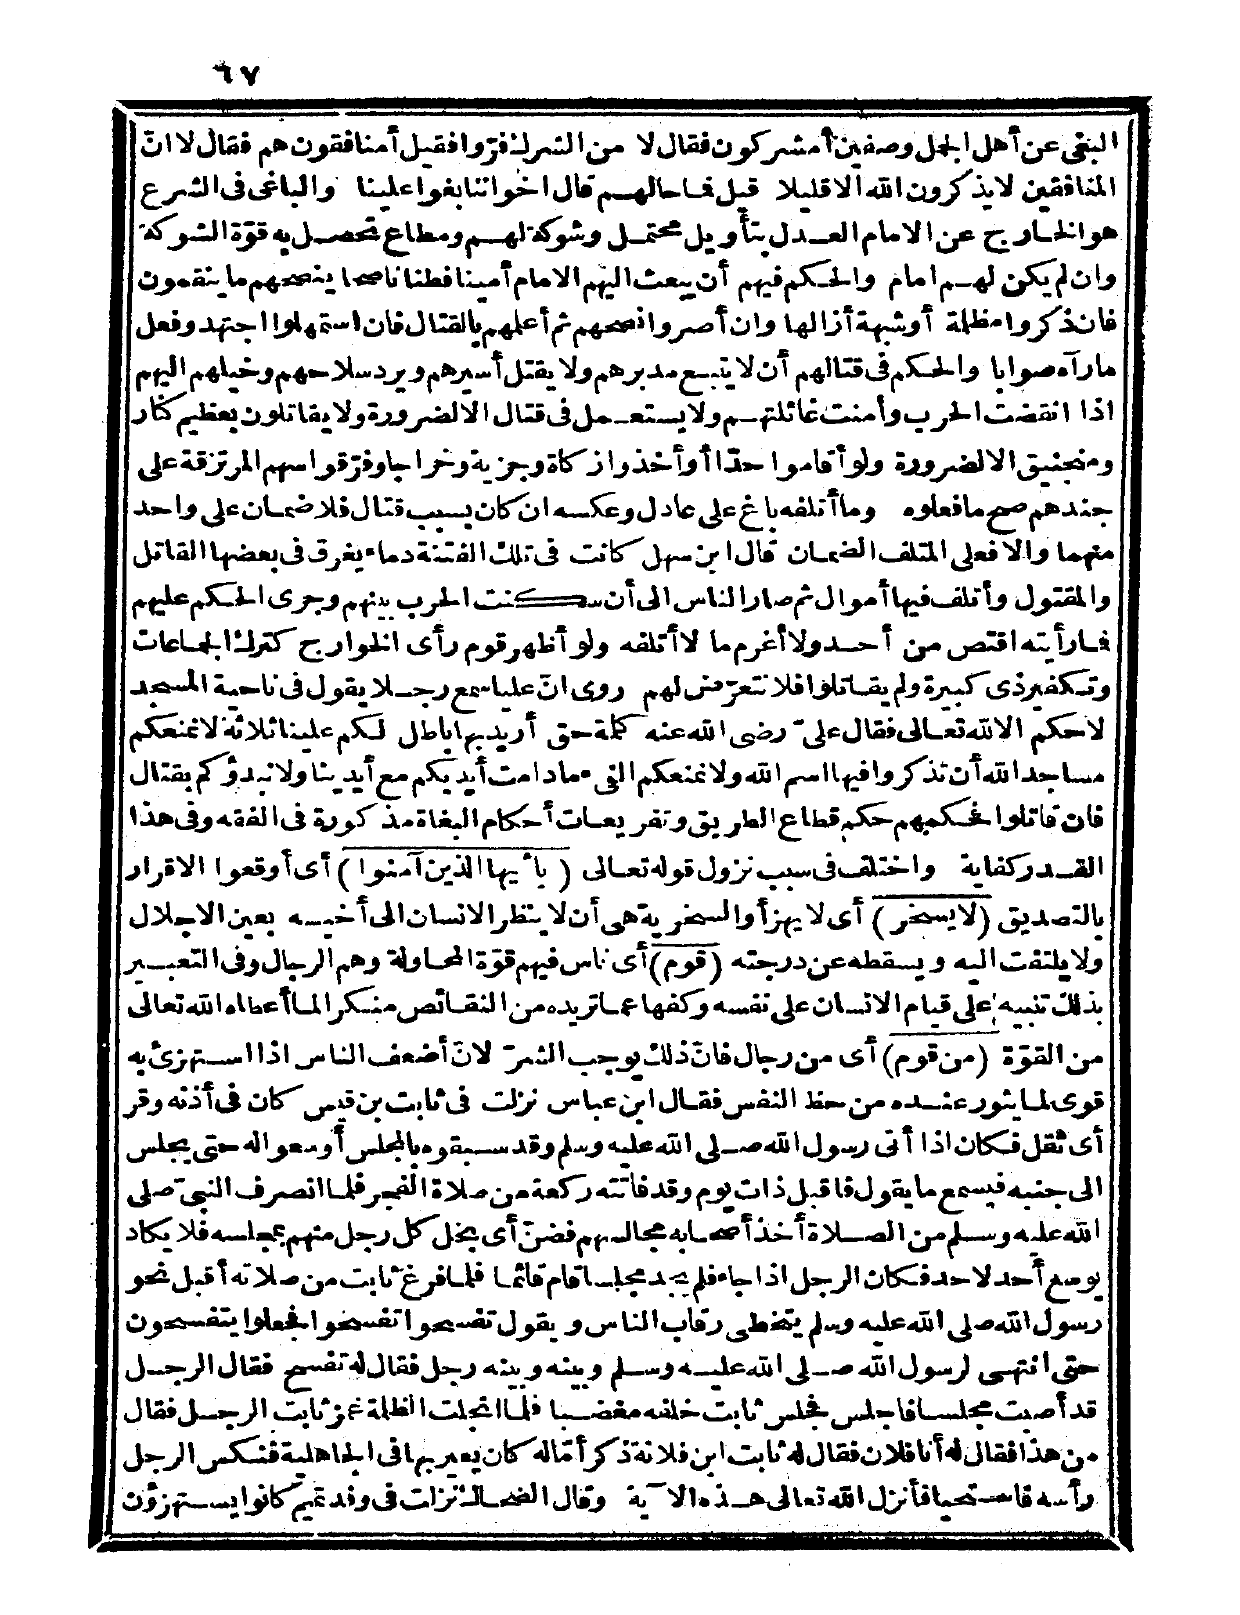 ٦٧
البغى عن أهل الجمل وصفين أمشركون فقال لا من الشرك فرّوا فقيل أمنافقون هم فقال لا انّ
المنافقين لا يذكرون الله الا قليلا قيل فما حالهم قال اخواننا بغوا علينا والباغى فى الشرع
هو الخارج عن الامام العدل بتأويل محتمل وشوكة لهم ومطاع تحصل به قوّة الشوكة
وان لم يكن لهم امام والحكم فيهم أن يبعث اليهم الامام أمينا فطنا ناصحا ينصحهم ما ينقمون
فان ذكروا مظلة أو شبهة أزالها وان أصروا نصحهم ثم أعلمهم بالقتال فان استمهلوا اجتهد وفعل
ما رآه صوابا والحكم فى قتالهم أن لا يتبع مدبرهم ولا يقتل أسيرهم ويرد سلاحهم وخيلهم اليهم
اذا انقضت الحرب وأمنت غائلتهم ولا يستعمل فى قتال الا لضرورة ولا يقاتلون بعظيم كنار
ومنجنيق الا لضرورة ولو أقاموا حدّا أو أخذوا زكاة وجزية وخراجا وفرّقوا سهم المرتزقة على
جندهم صح ما فعلوه وما أتلفه باغ على عادل وعكسه ان كان بسبب قتال فلا ضمان على واحد
منهما والا فعلى المتلف الضمان قال ابن سهل كانت فى تلك الفتنة دماء يعرف فى بعضها القاتل
والمقتول وأتلف فيها أموال ثم صار الناس الى أن سكنت الحرب بينهم وجرى الحكم عليهم
فما رأيته اقتص من أحد ولا أغرم ما لا أتلفه ولو أظهر قوم رأى الخوارج كترك الجماعات
وتكفير ذى كبيرة ولم يقاتلوا فلا نتعرّض لهم روى انّ عليا سمع رجلا يقول فى ناحية المسجد
لا حكم الا لله تعالى فقال علىّ رضى الله عنه كلمة حق أريد بها باطل لكم علينا ثلاثة لا نمنعكم
مساجد الله أن تذكروا فيها اسم الله ولا نمنعكم الفىء ما دامت أيديكم مع أيدينا ولا نبدؤكم بقتال
فان قاتلوا فحكمهم حكم قطاع الطريق وتفريعات أحكام البغاة مذكورة فى الفقه وفى هذا
القدر كفاية واختلف فى سبب نزول قوله تعالى (يا أيها الذين آمنوا) أى أوقعوا الاقرار
بالتصديق (لا يسخر) أى لا يهزأ والسخرية هى أن لا ينظر الانسان الى أخيه بعين الاجلال
ولا يلتفت اليه ويسقطه عن درجته (قوم) أى ناس فيهم قوّة المحاولة وهم الرجال وفى التعبير
بذلك تنبيه على قيام الانسان على نفسه وكفها عما تريده من النقائص منكرا لما أعطاه الله تعالى
من القوّة (من قوم) أى من رجال فانّ ذلك يوجب الشرّ لانّ أضعف الناس اذا استهزئ به
قوى لما يثور عنده من حظ النفس فقال ابن عباس نزلت فى ثابت بن قيس كان فى أذنه وقر
أى ثقل فكان اذا أتى رسول الله صلى الله عليه وسلم وقد سبقوه بالمجلس أوسعوا له حتى يجلس
الى جنبه فيسمع ما يقول فاقبل ذات يوم وقد فاتته ركعة من صلاة الفجر فلما انصرف النبىّ صلى
الله عليه وسلم من الصلاة أخذ أصحابه مجالسهم فضنّ أى بخل كل رجل منهم بمجلسه فلا يكاد
يوسع أحد لاحد فكان الرجل اذا جاء فلم يجد مجلسا قام قائما فلما فرغ ثابت من صلاته أقبل نحو
رسول الله صلى الله عليه وسلم يتخطى رقاب الناس ويقول تفسحوا تفسحوا فجعلوا يتفسحون
حتى انتهى لرسول الله صلى الله عليه وسلم وبينه وبينه رجل فقال له تفسح فقال الرجل
قد أصبت مجلسا فاجلس فجلس ثابت خلفه مغضبا فلما انجلت الظلمة غمز ثابت الرجل فقال
من هذا فقال له أنا فلان فقال له ثابت ابن فلانة ذكر أمّا له كان يعير بها فى الجاهلية فنكس الرجل
رأسه فاستحيا فأنزل الله تعالى هذه الآية وقال الضحاك نزلت فى وفد تميم كانوا يستهزؤن